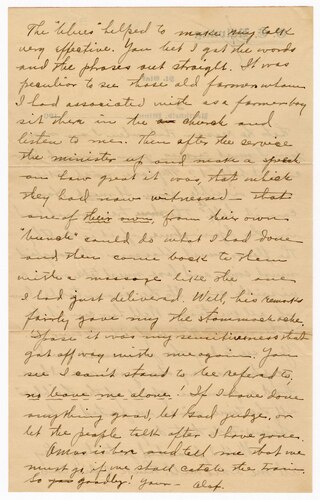 The "blues" helped to make my talk
very effective. You bet I got the words
and the phrases out straight. It was
peculiar to see those old farmers whom
I had associated with as a farmer boy
sit there in the church and
listen to me. Then after the service
the minister up and made a speech
on how great it was, that which
they had now witnessed – that
one of their own, from their own
"bunch" could do what I had done
and then come back to them
with a message like the one
I had just delivered. Well, his remarks
fairly gave my the stommach ache.
I spose it was my sensitiveness that
got off way with me again. You
see I can't stand to be refered to,
no leave me alone! If I have done
anything good, let God judge, or
let the people talk after I have gone.
Amos is here and tell me that we
must go, if we shall catch the train.
So goodby! Your – Alex.